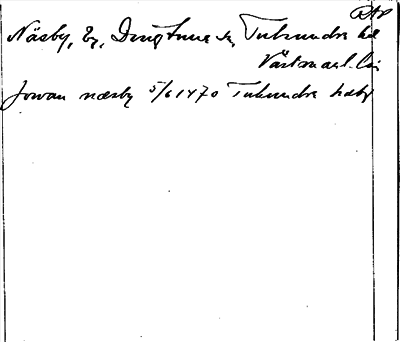 DAP
Näsby, By, Dingtuna sn, Tuhundra hd
Västmanl. län
Jowan næsby 5/6 1470 Tuhundra hæradh